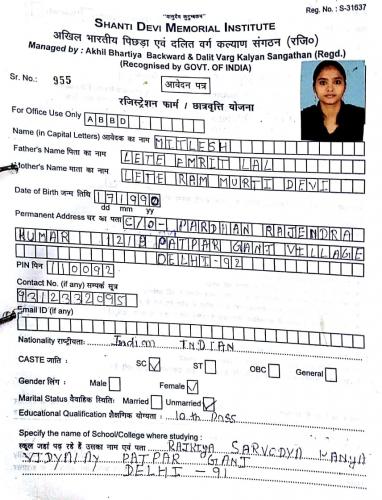 "वसुधैव कुटुम्बकम्"
Reg. No. : S-31637
SHANTI DEVI MEMORIAL INSTITUTE
अखिल भारतीय पिछड़ा एवं दलित वर्ग कल्याण संगठन (रजि०)
Managed by : Akhil Bhartiya Backward & Dalit Varg Kalyan Sangathan (Regd.)
(Recognised by GOVT. OF INDIA)
Sr. No.: 955
आवेदन पत्र
रजिस्ट्रेशन फार्म / छात्रवृत्ति योजना
For Office Use Only A B B D
Name (in Capital Letters) आवेदक का नाम MITLESH
Father's Name पिता का नाम LETE AMRIT LAL
Mother's Name माता का नाम LETE RAM MURTI DEVI
Date of Birth जन्म तिथि 171990
dd mm yy
Permanent Address घर का पता C/O-PARDHAN RAJENDRA
KUMAR 121 PATPAR GANJ VILLAGE
DELHI-92
PIN पिन 110092
Contact No. (if any) सम्पर्क सूत्र
9312332095
Email ID (if any)
Nationality राष्ट्रीयता: Indian INDIAN
CASTE जाति : SC ✓ ST OBC General
Gender लिंग : Male Female ✓
Marital Status वैवाहिक स्थिति: Married Unmarried ✓
Educational Qualification शैक्षणिक योग्यता : 10th Pass
Specify the name of School/College where studying :
स्कूल जहाँ पढ़ रहे हैं उसका नाम एवं पता RAJKIYA SARVODYA KANYA
VIDYALAY PATPAR GANJ
DELHI-91